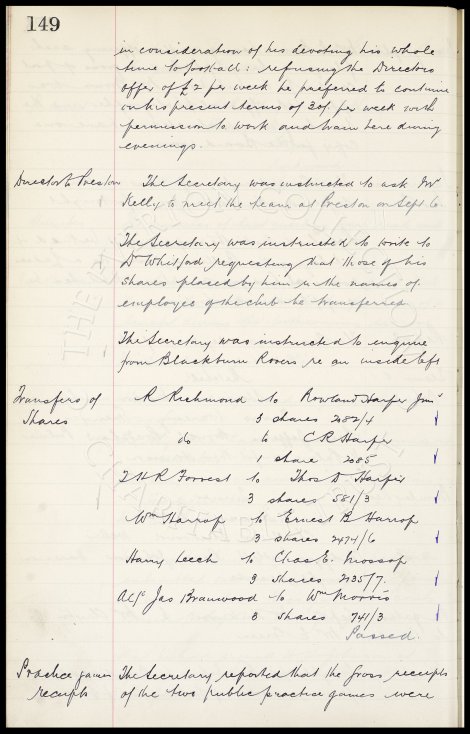 149
in consideration of his devoting his whole
time to football: refusing the Directors
offer of £2 per week he preferred to continue
on his present terms of 30/- per week with
permission to work and train here during
evenings.
Director to Preston The Secretary was instructed to ask Mr
Kelly to meet the team at Preston on Sept. 6.
The Secretary was instructed to write to
Dr Whitford requesting that those of his
shares placed by him in the names of
employees of the club be transferred
The Secretary was instructed to enquire
from Blackburn Rovers re an inside left
Transfers of Shares
R Richmond to Rowland Harper Junr
3 shares 2082/4
do to C R Harper
1 share 2085
T H R Forrest to Thos D. Harper
3 shares 581/3
Wm Harrop to Ernest B Harrop
3 shares 2474/6
Harry Leech to Chas E. Mossop
3 shares 2135/7.
Jas Branwood to Wm Morris
3 shares 741/3
Passed.
Practice games receipts
The Secretary reported that the gross receipts
of the two public practice games were